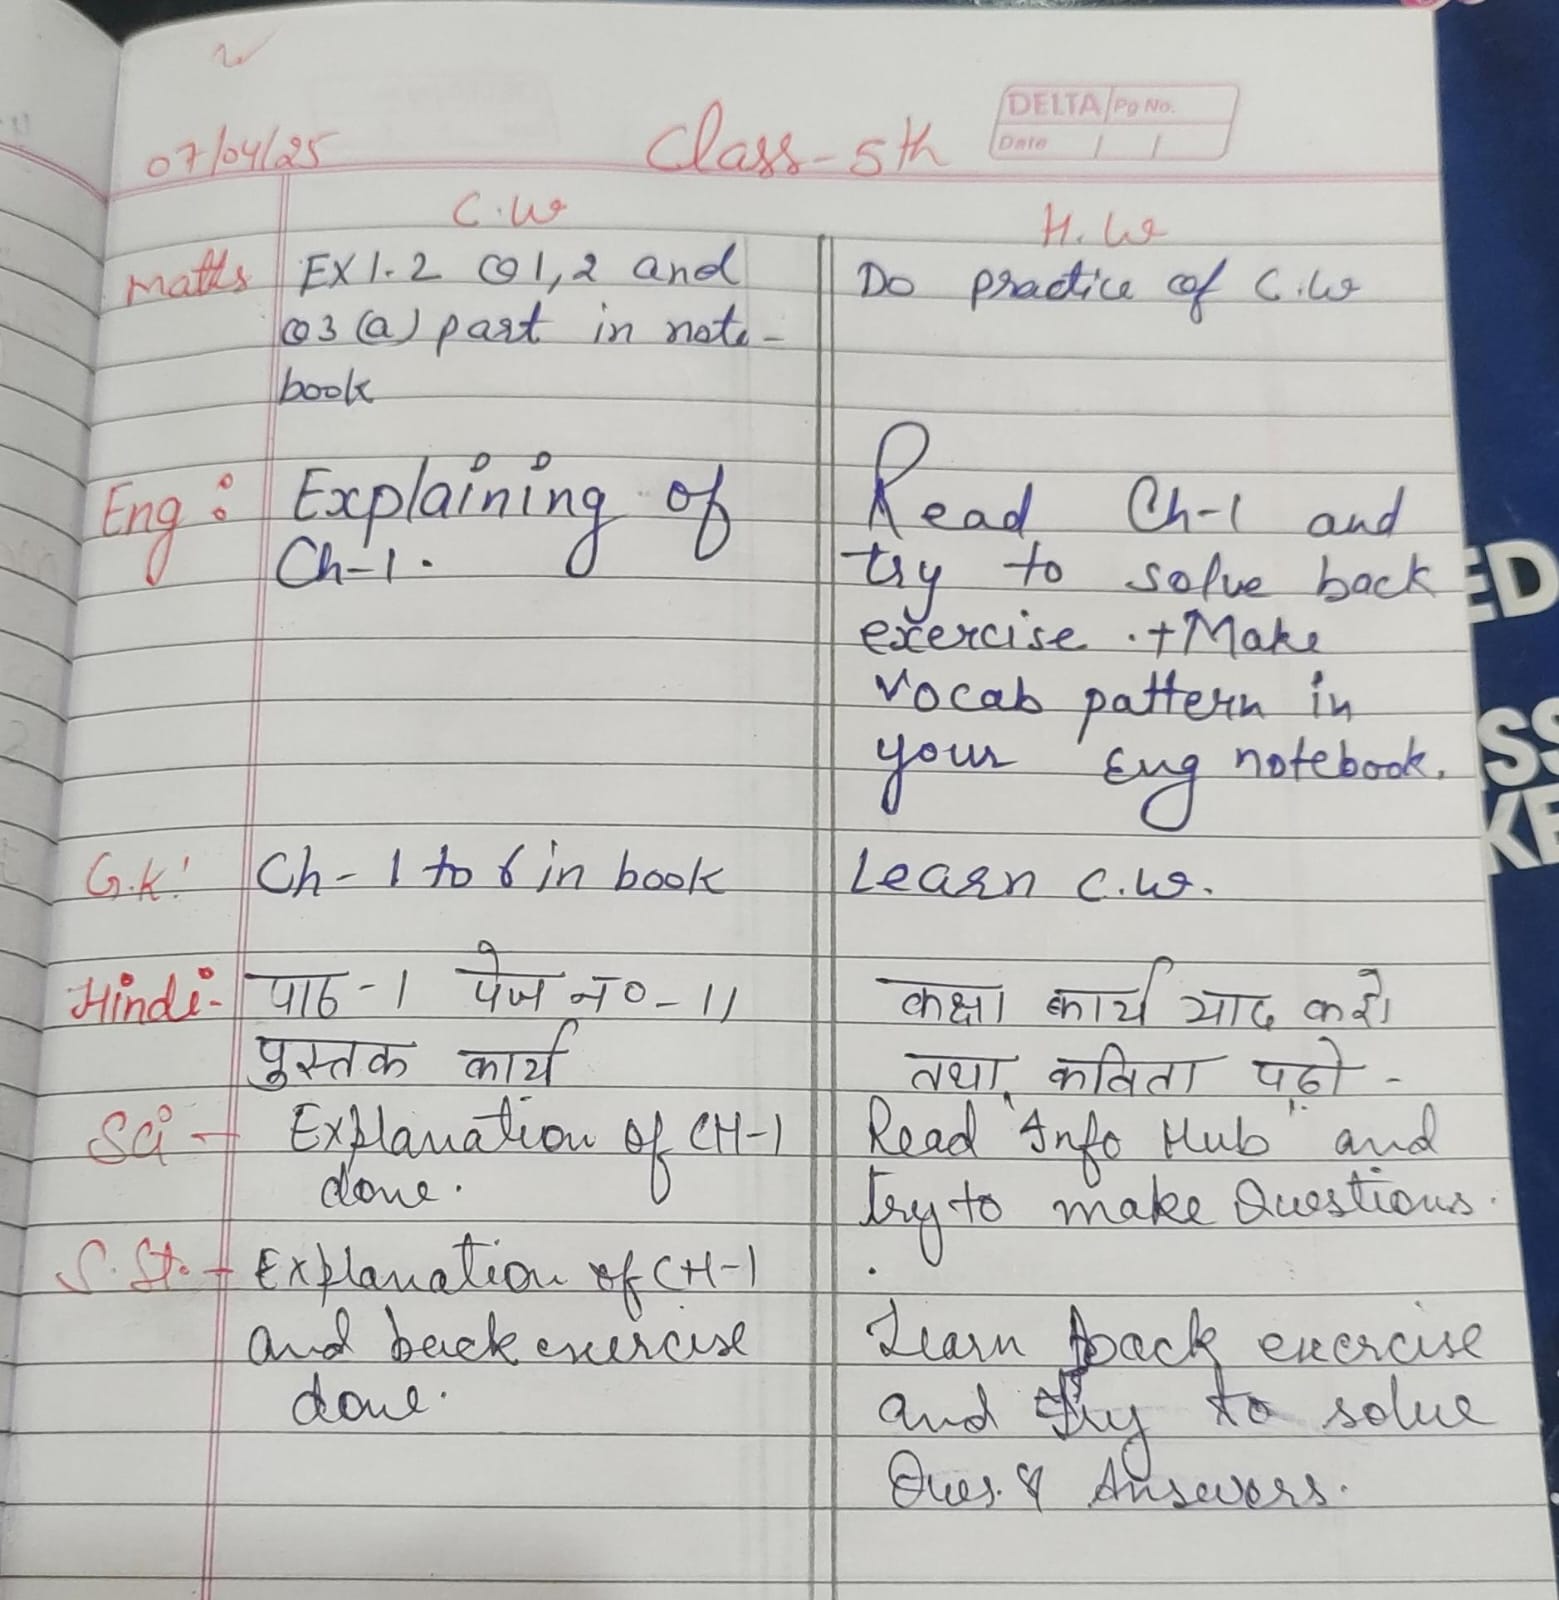 07/04/25
Class-5th
DELTA Pg No.
Date / /
C.W
H.W
Maths
EX 1.2 Q1,2 and
Q3 (a) part in note-
book
Do practice of C.W
Eng:
Explaining of
Ch-1.
Read Ch-1 and
try to solve back
exercise .+Make
vocab pattern in
your Eng notebook.
G.K:
Ch-1 to 6 in book
Learn C.W.
Hindi-
पाठ-1 पेज न०-11
पुस्तक कार्य
कक्षा कार्य याद करो।
तथा कविता पढ़ो -
Sci -
Explanation of CH-1
done.
Read "Info Hub" and
try to make Questions.
S.St. -
Explanation of CH-1
and back exercise
done.
Learn back exercise
and try to solve
Ques. & Answers.
ED
SS
KE